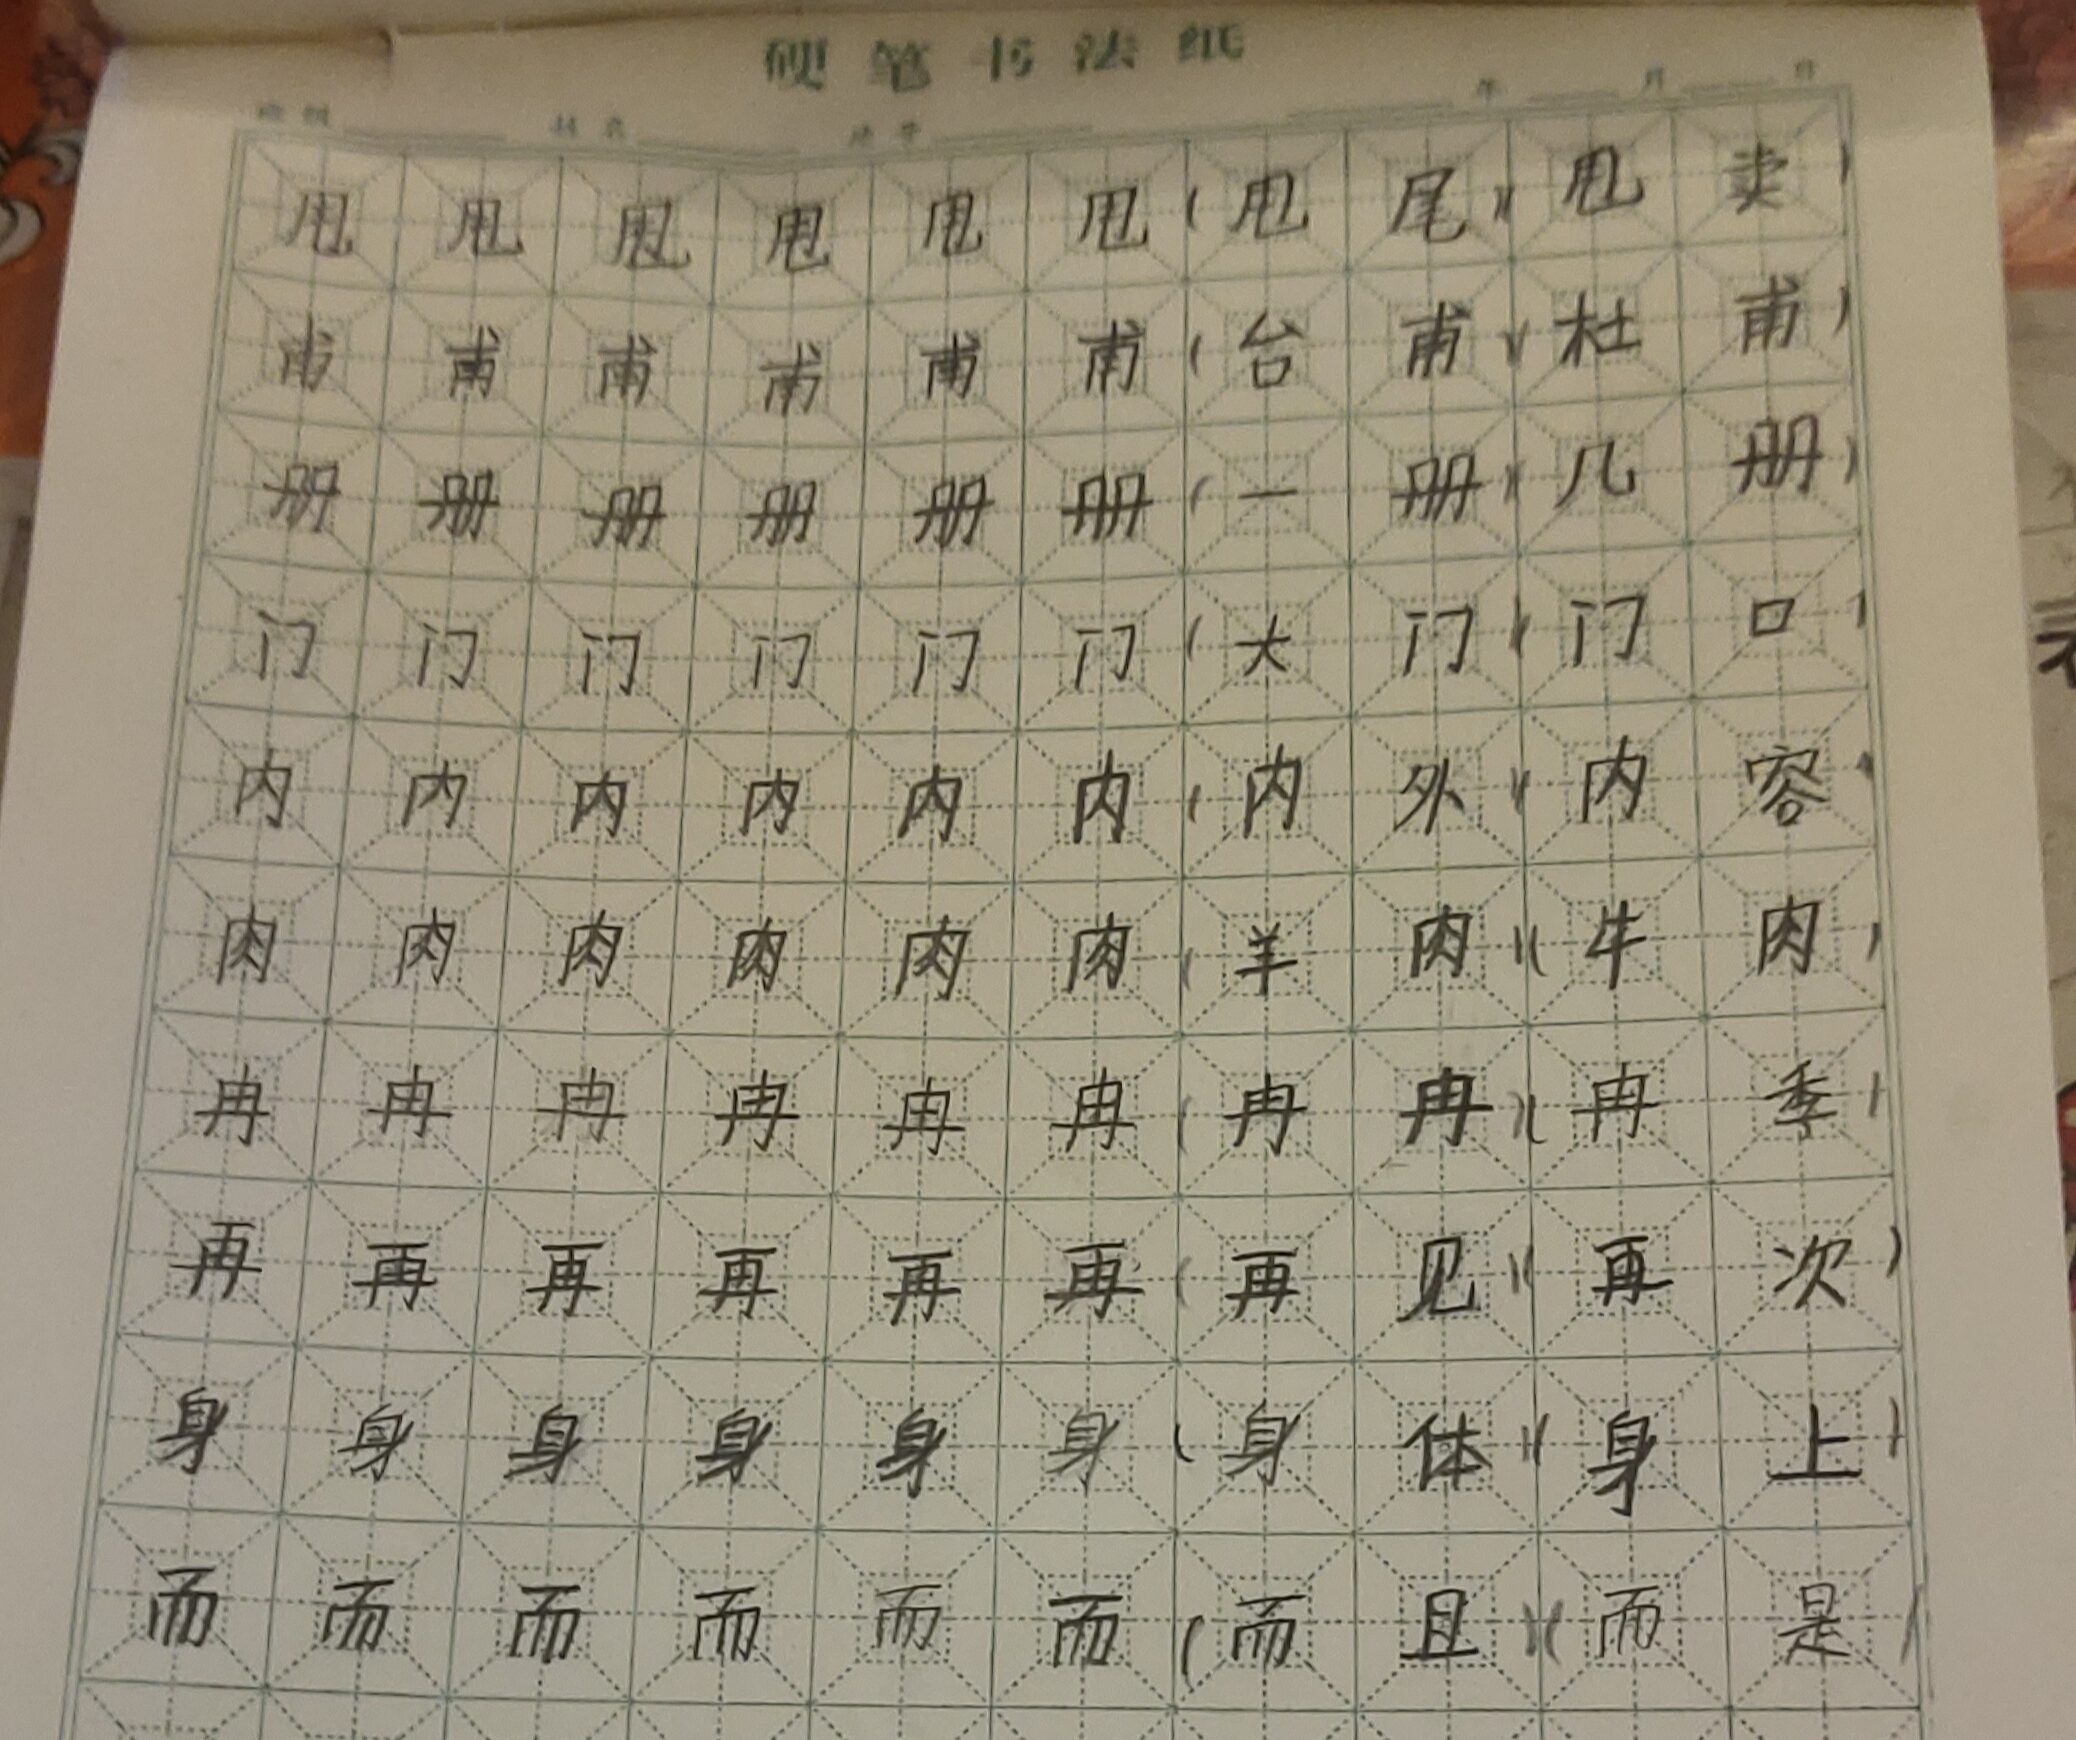 硬笔书法纸
年 月 日
甩甩甩甩甩甩(甩尾)(甩卖)
甫甫甫甫甫甫(台甫)(杜甫)
册册册册册册(一册)(几册)
门门门门门门(大门)(门口)
内内内内内内(内外)(内容)
肉肉肉肉肉肉(羊肉)(牛肉)
冉冉冉冉冉冉(冉冉)(冉季)
再再再再再再(再见)(再次)
身身身身身身(身体)(身上)
而而而而而而(而且)(而是)